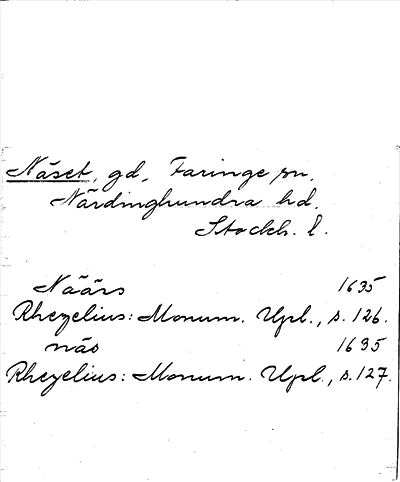 Näset, gd, Faringe sn,
Närdinghundra hd.
Stockh. l.
Näärs 1635
Rhezelius: Monum. Upl., s. 126.
näs 1635
Rhezelius: Monum. Upl., s. 127.